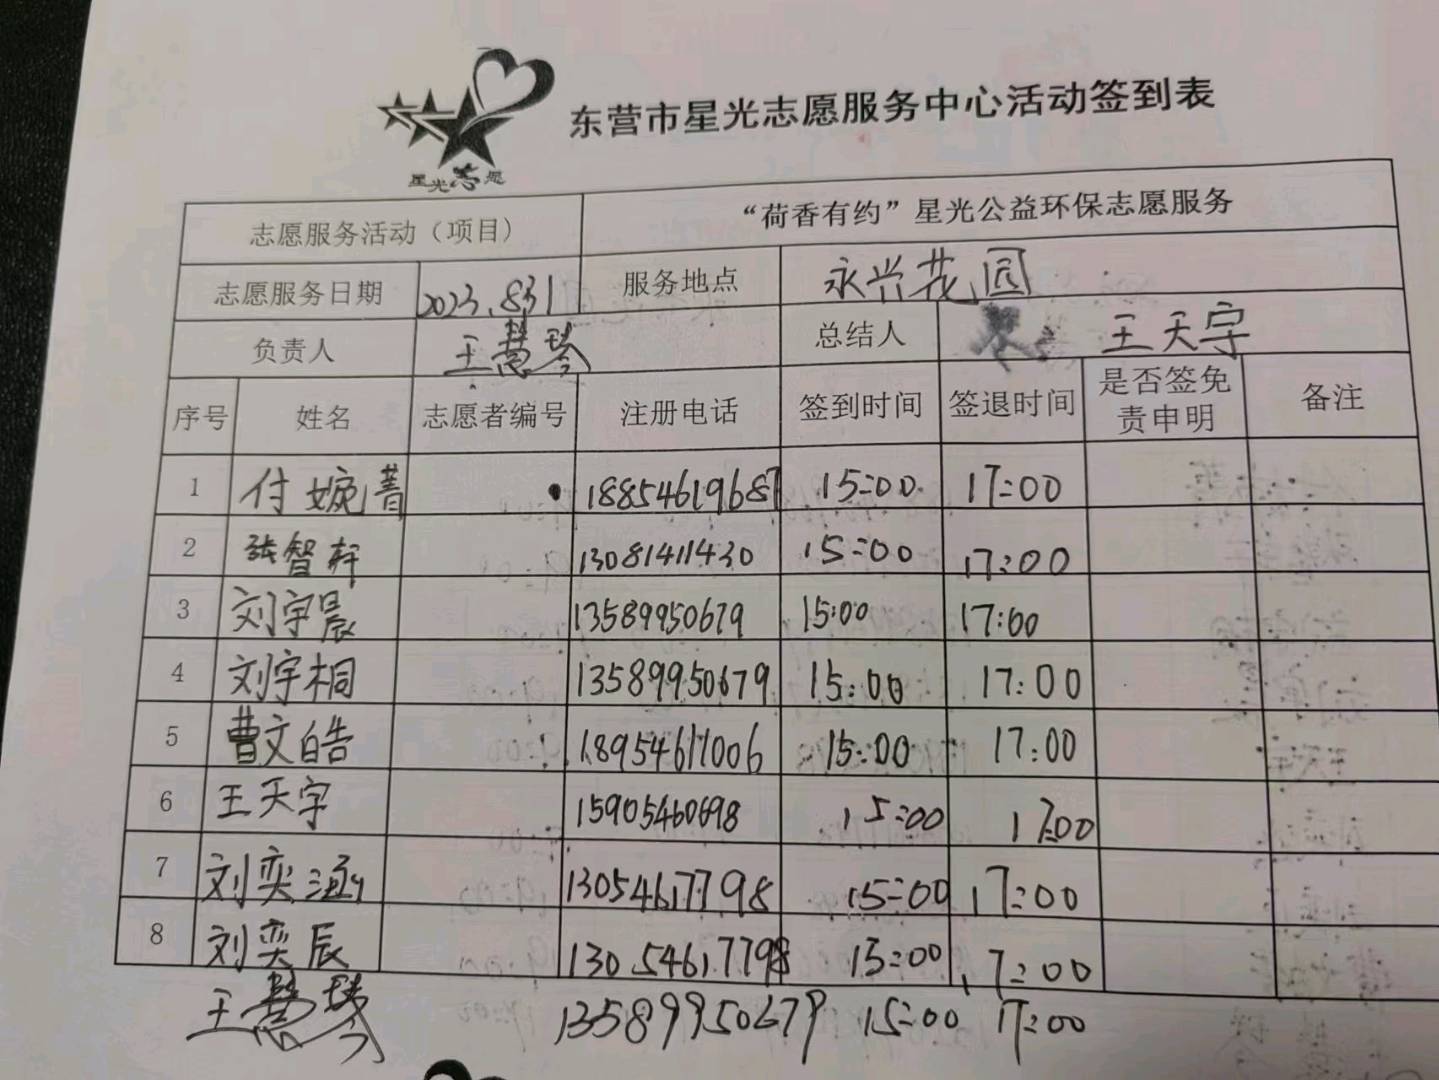 星光志愿
东营市星光志愿服务中心活动签到表
志愿服务活动（项目） “荷香有约”星光公益环保志愿服务
志愿服务日期 2023.8.31 服务地点 永兴花园
负责人 王慧琴 总结人 王天宇
序号 姓名 志愿者编号 注册电话 签到时间 签退时间 是否签免责申明 备注
1 付婉菁 18854619687 15:00 17:00
2 张智轩 13081411430 15:00 17:00
3 刘宇晨 13589950679 15:00 17:00
4 刘宇桐 13589950679 15:00 17:00
5 曹文皓 18954617006 15:00 17:00
6 王天宇 15905460698 15:00 17:00
7 刘奕涵 13054617798 15:00 17:00
8 刘奕辰 13054617798 15:00 17:00
王慧琴 13589950679 15:00 17:00